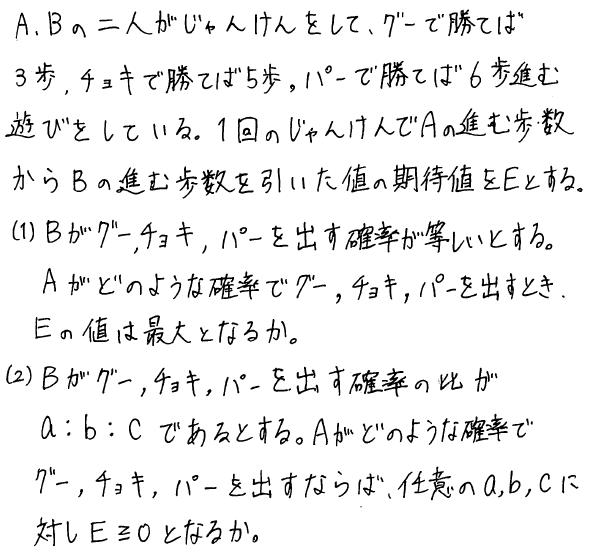 A、Bの二人がじゃんけんをして、グーで勝てば
3歩、チョキで勝てば5歩。パーで勝てば6歩進む
遊びをしている。1回のじゃんけんでAの進む歩数
からBの進む歩数を引いた値の期待値をEとする。
(1) Bがグー,チョキ,パーを出す確率が等しいとする。
Aがどのような確率でグー,チョキ,パーを出すとき、
Eの値は最大となるか。
(2) Bがグー,チョキ,パーを出す確率の比が
a:b:cであるとする。Aがどのような確率で
グー,チョキ,パーを出すならば、任意のa,b,cに
対しE≧0となるか。